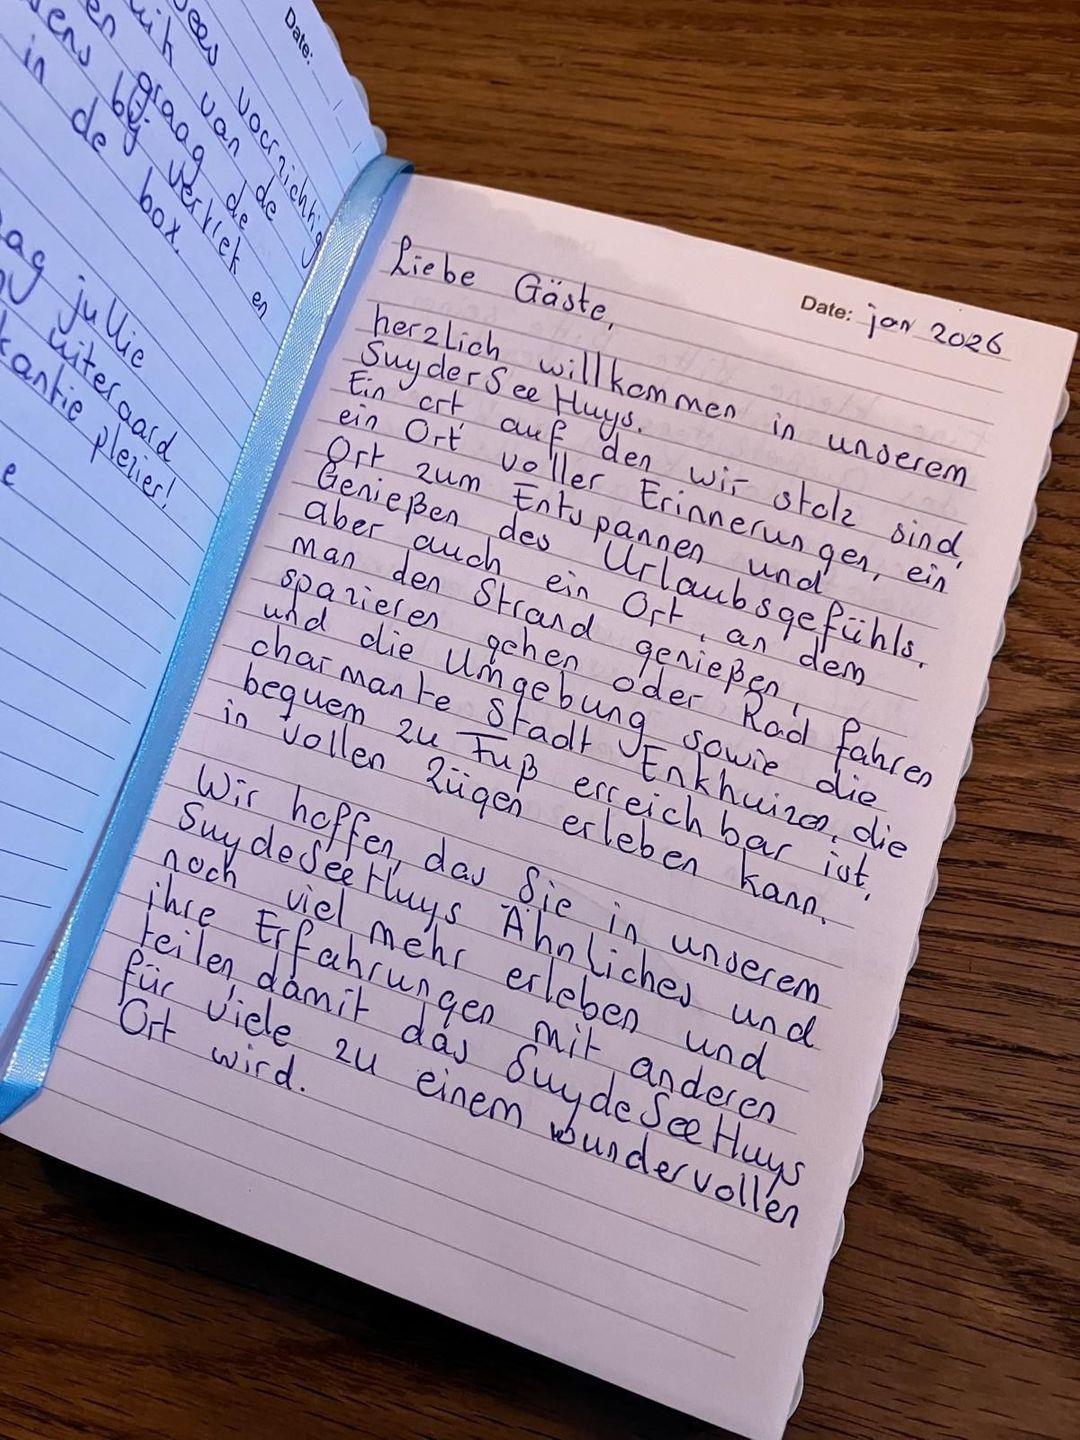 voorzichtig
van de
graag de
bij vertrek en
in de box.
jullie
uiteraard
plezier!
Date:
Date: jan 2026
Liebe Gäste,
herzlich willkommen in unserem
SuyderSeeHuys.
Ein ort auf den wir stolz sind,
ein Ort voller Erinnerungen, ein
Ort zum Entspannen und
Genießen des Urlaubsgefühls.
aber auch ein Ort, an dem
man den Strand genießen,
spazieren gehen oder Rad fahren
und die Umgebung sowie die
charmante Stadt Enkhuizen, die
bequem zu Fuß erreichbar ist,
in vollen Zügen erleben kann.
Wir hoffen, das Sie in unserem
SuydeSeeHuys Ähnliches und
noch viel mehr erleben und
ihre Erfahrungen mit anderen
teilen, damit das SuydeSeeHuys
für viele zu einem wundervollen
Ort wird.